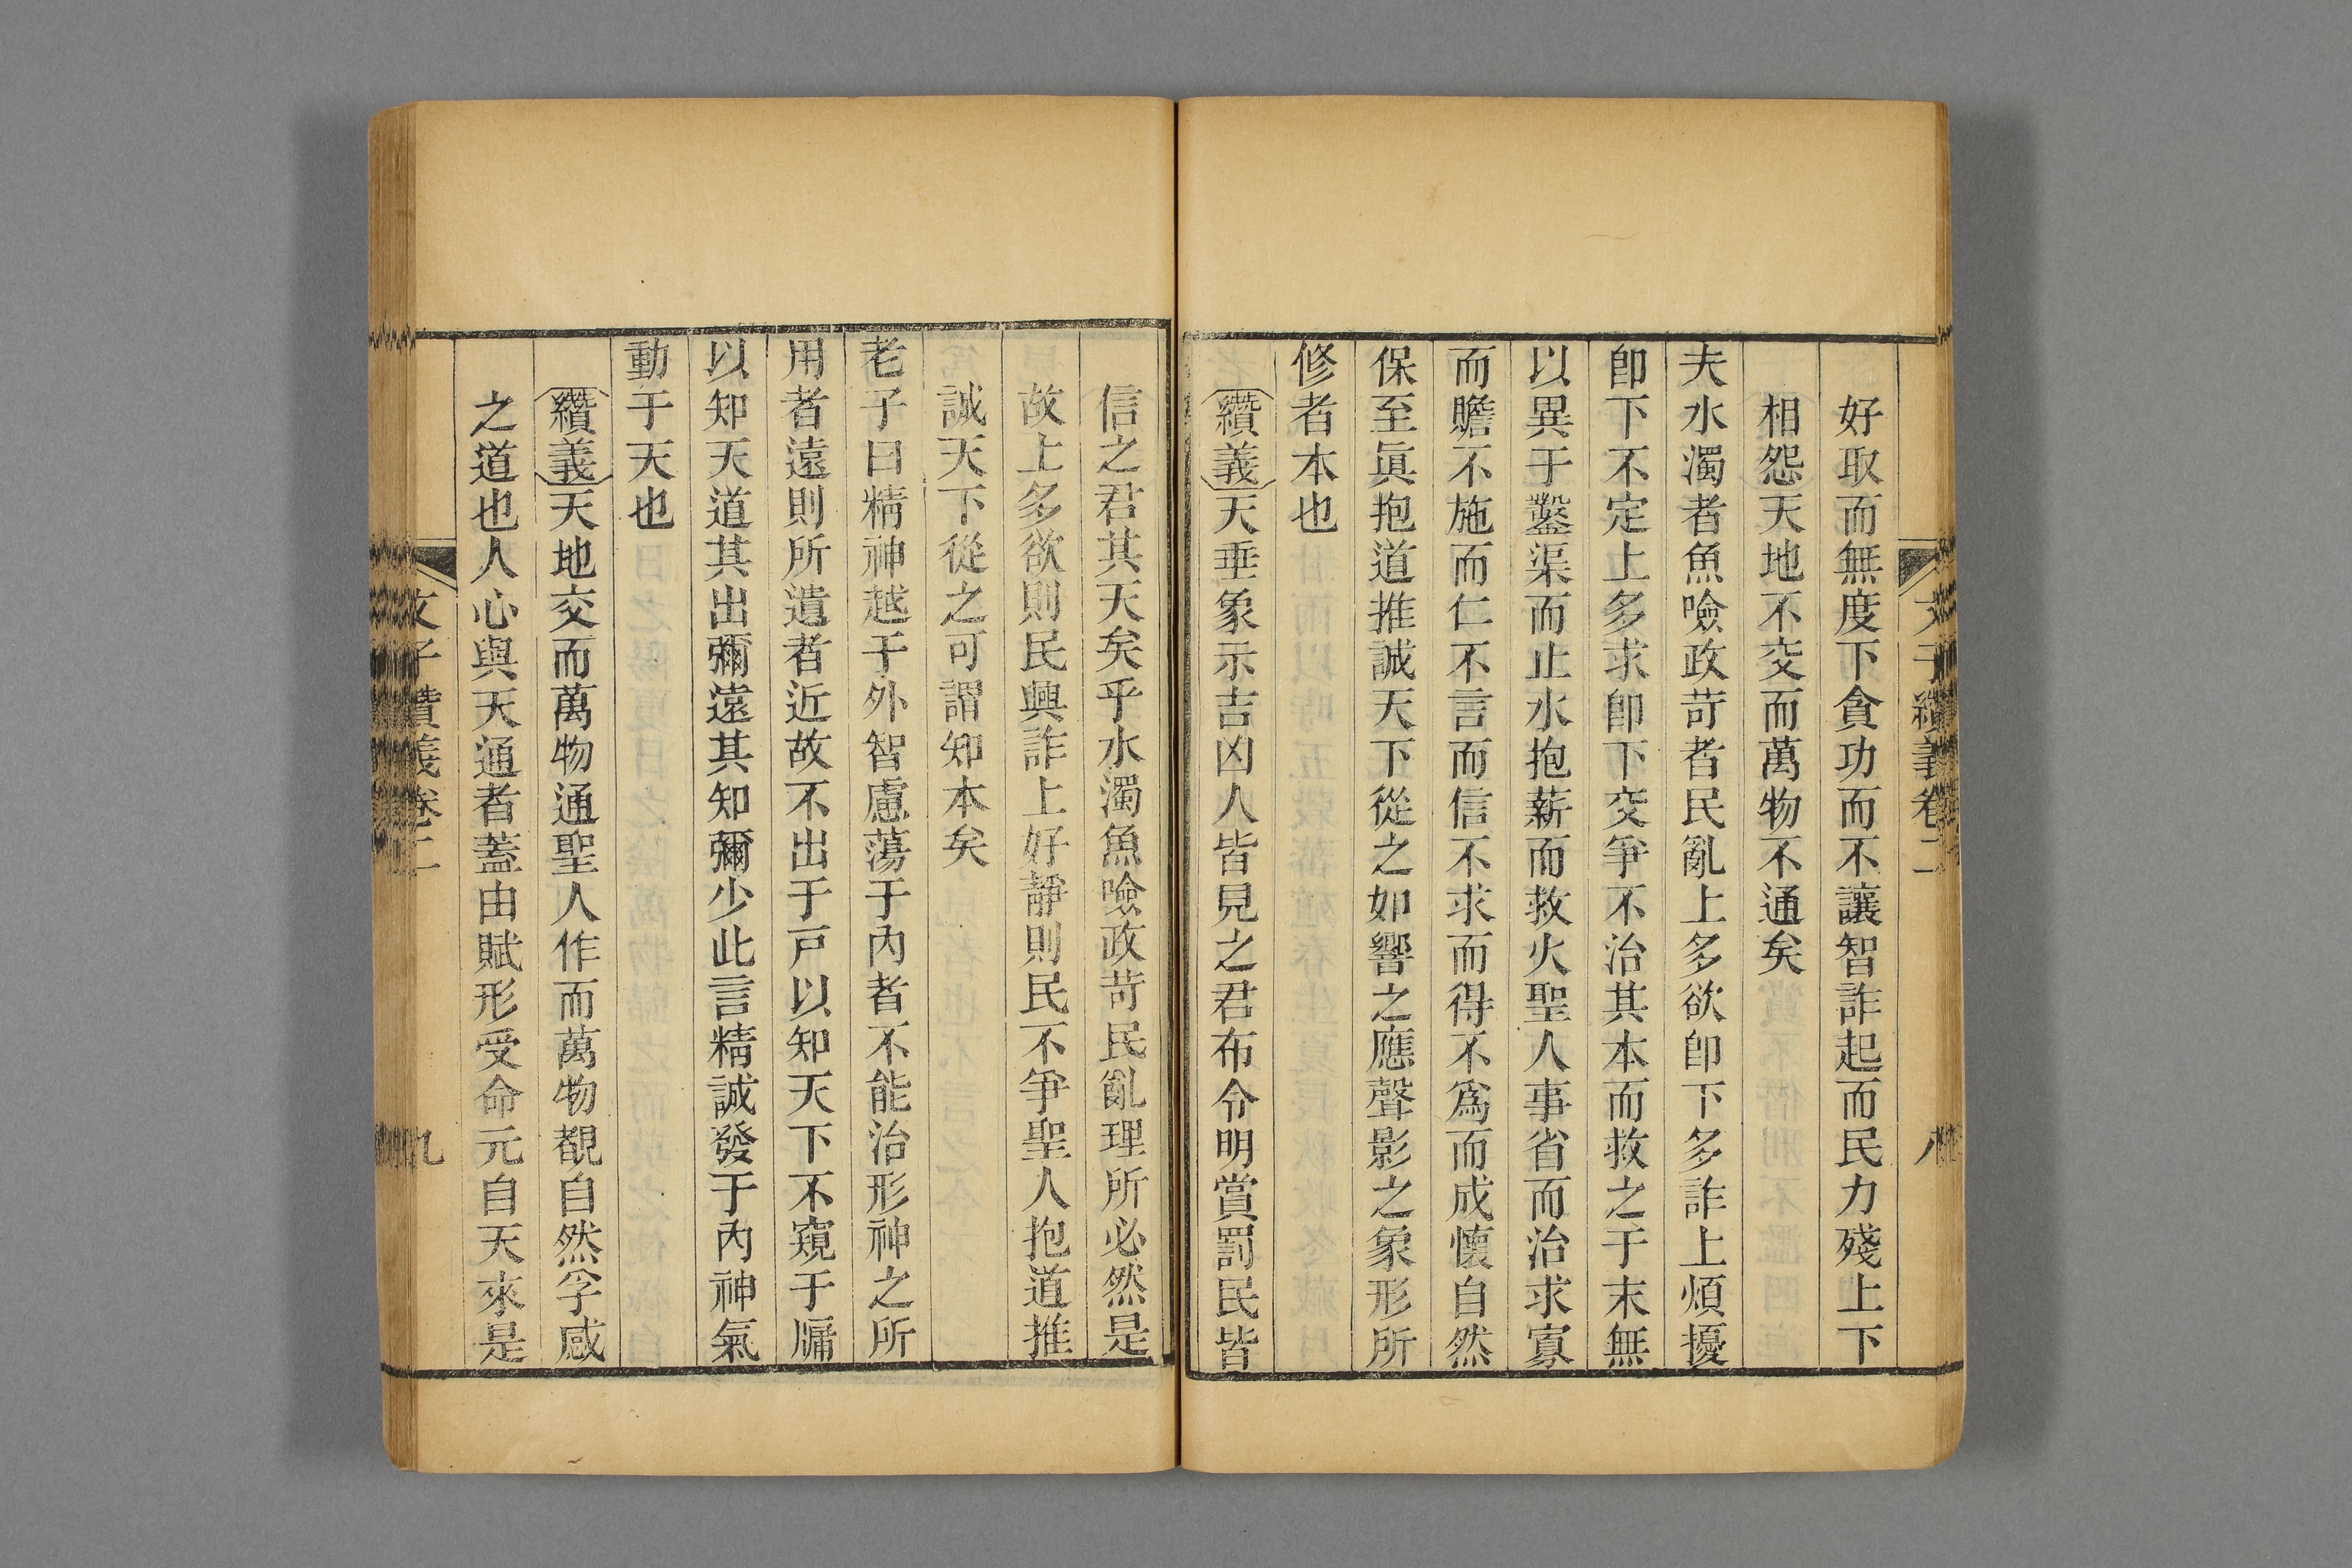 文子纘義卷二 八
好取而無度下貪功而不讓智詐起而民力殘上下
相怨天地不交而萬物不通矣
夫水濁者魚噞政苛者民亂上多欲卽下多詐上煩擾
卽下不定上多求卽下交爭不治其本而救之于末無
以異于鑿渠而止水抱薪而救火聖人事省而治求寡
而贍不施而仁不言而信不求而得不爲而成懷自然
保至眞抱道推誠天下從之如響之應聲影之象形所
修者本也
纘義天垂象示吉凶人皆見之君布令明賞罰民皆
信之君其天矣乎水濁魚噞政苛民亂理所必然是
故上多欲則民興詐上好靜則民不爭聖人抱道推
誠天下從之可謂知本矣
老子曰精神越于外智慮蕩于內者不能治形神之所
用者遠則所遺者近故不出于戸以知天下不窺于牖
以知天道其出彌遠其知彌少此言精誠發于內神氣
動于天也
纘義天地交而萬物通聖人作而萬物覩自然孚感
之道也人心與天通者蓋由賦形受命元自天來是
文子纘義卷二 九